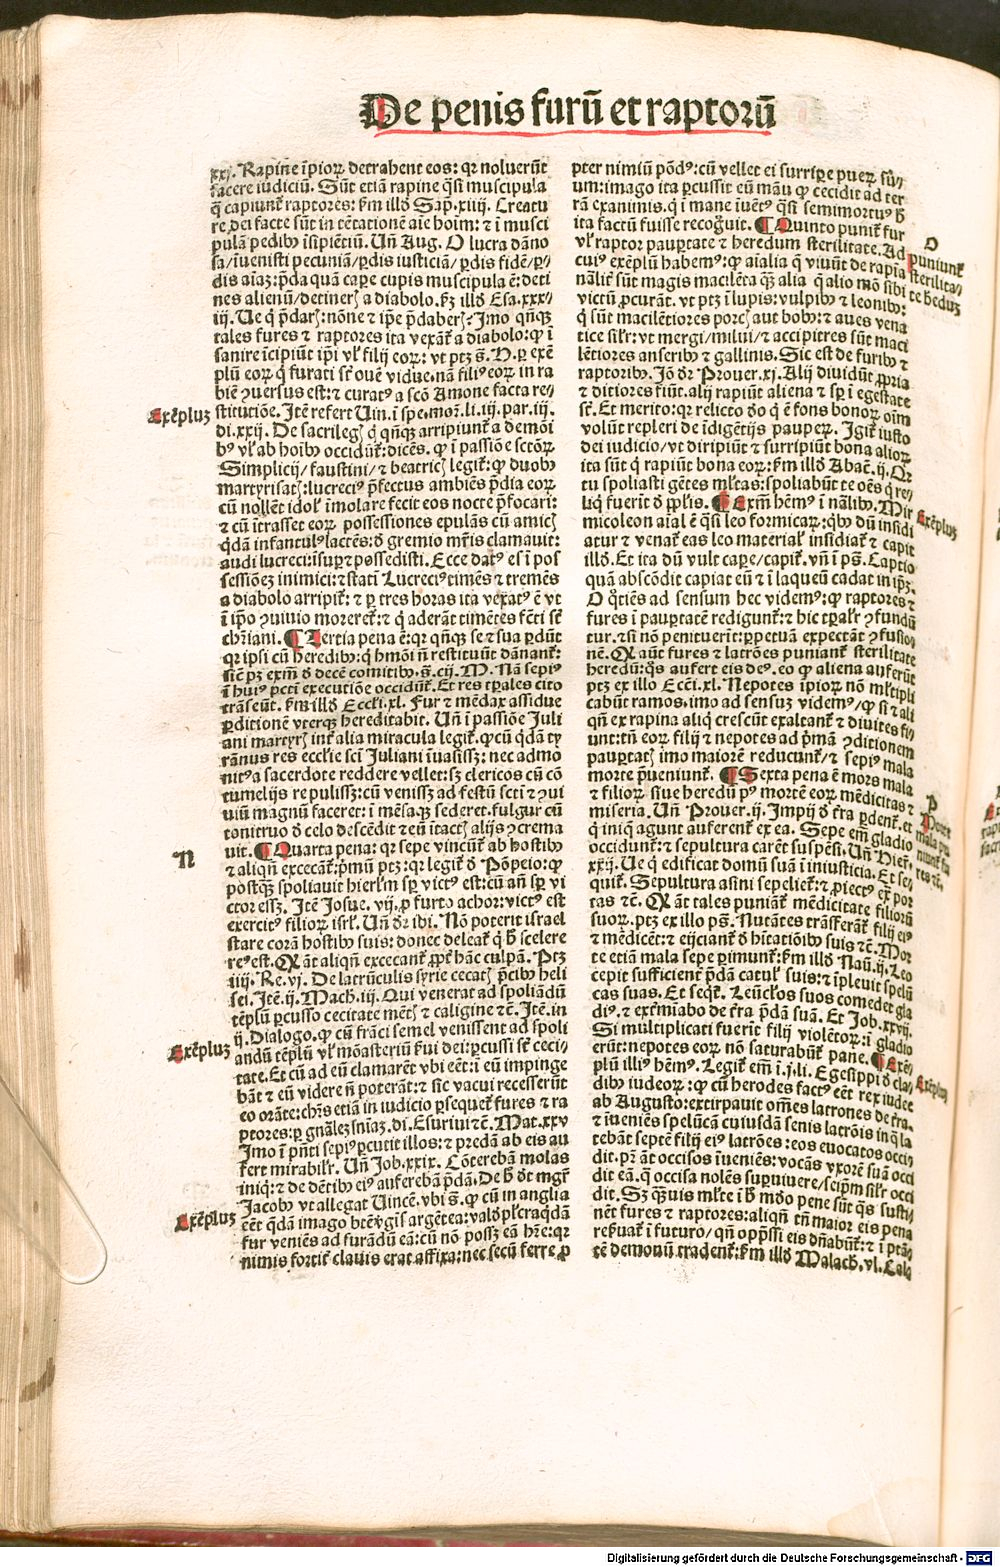 De penis furū et raptoꝝ
xxj. Rapine īpioꝝ detrahent eos: qꝛ noluerūt
facere iudiciū. Sūt etiā rapine q̄si muscipula
q̄ capiunt raptores: ẜm illḋ Sap̄. xiiij. Creatu
re dei facte sūt in tētationē aīe hoīm: ⁊ ī musci
pulā pedibꝰ īsipiētiū. Uñ Aug. O lucra dāno
sa/īuenisti pecuniā/ꝑdis iusticiā/ꝑdis fidē/ꝑ/
dis aīaꝫ: p̄da quā cape cupis muscipula ē: deti
nes alienū/detineris a diabolo. ẜm illḋ Esa. xxx/
iij. Ue q̄ p̄daris: nōne ⁊ ip̄e p̄daberis? Imo qn̄qꝫ
tales fures ⁊ raptores ita vexāt̄ a diabolo: ꝙ ī
sanire īcipiūt ip̄i vl̓ filij eoꝝ: vt ptꝫ s̄. N. ꝑ exē
plū eoꝝ q̄ furati st̄ ouē vidue. nā filiꝰ eoꝝ in ra
biē ꝯuersus est: ⁊ curatꝰ a scō Amone facta re/
Exēpluꝫ
stitutiōe. Itē refert Uin. ī spe. mor. li. iij. par. iij.
di. xxij. De sacrilegis q̄ qn̄qꝫ arripiunt̄ a demōi
bꝰ vl̓ ab hoībꝰ occidūt̄: dicēs. ꝙ ī passiōe sctōꝝ
Simplicij/faustini/⁊ beatricis legit̄: ꝙ duobꝰ
martyrisatis: lucreciꝰ p̄fectus ambiēs p̄dia eoꝝ
cū nollēt idol̓ īmolare fecit eos nocte p̄focari:
⁊ cū ītrasset eoꝝ possessiones epulās cū amicis
q̄dā infantulꝰ lactēs: ḋ gremio mr̄is clamauit:
audi lucreci: īsuꝑ ⁊ possedisti. Ecce datꝰ es ī pos
sessiōeꝫ inimici: ⁊ statī Lucreciꝰ timēs ⁊ tremēs
a diabolo arripit̄: ⁊ ꝑ tres horas ita vexatꝰ ē vt
ī ip̄o ꝯuiuio moreret̄: ⁊ q̄ aderāt timētes fcti st̄
chr̄iani. ¶ Tertia pena ē: qꝛ qn̄qꝫ se ⁊ sua ꝑdūt
qꝛ ipsi cū heredibꝰ: q̄ hmōi n̄ restituūt dānant̄:
sic̄ pꝫ exm̄ ḋ decē comitibꝰ. s̄. cij. M. Nā sepiꝰ
ī huiꝰ pcti executiōe occidūt̄. Et res tꝑales cito
trāseūt. ẜm illḋ Eccli. xl. Fur ⁊ mēdax assidue
ꝑditionē vterqꝫ hereditabit. Uñ ī passiōe Juli
ani martyris int̄ alia miracula legit̄. ꝙ cū q̄dā ty
rānus res ecclie sci Juliani īuasissꝫ: nec admo
nitꝰ a sacerdote reddere vellet: sꝫ clericos cū cō
tumelijs repulissꝫ: cū venissꝫ ad festū scti ⁊ ꝯui
uiū magnū faceret: ī mēsa qꝫ sederet. fulgur cū
tonitruo ḋ celo descēdit ⁊ eū ītactis alijs ꝯcrema
N
uit. ¶ Quarta pena: qꝛ sepe vincūt̄ ab hostibꝰ
⁊ aliqn̄ excecant̄. p̄mū ptꝫ: qꝛ legit̄ ḋ Pōpeio: ꝙ
postqꝫ spoliauit hierl̓m sp̄ victꝰ est: cū añ sp̄ vi
ctor essꝫ. Itē Josue. vij. ꝓ furto achor: victꝰ est
exercitꝰ filioꝝ isrl̓. Uñ dr̄ ibi. Nō poterit israel
stare corā hostibꝰ suis: donec deleat̄ q̄ h̄ scelere
reꝰ est. Qḋ āt aliqn̄ excecant̄ ꝓpt̄ hāc culpā. Ptꝫ
iiij. Re. vj. De latrūculis syrie cecatis p̄cibꝰ heli
sei. Itē. ij. Mach. iij. Qui venerat ad spoliādū
tēplū ꝑcusso cecitate mētis ⁊ caligine ⁊c̄. Itē. in
Exēpluꝫ
ij. Dialogo. ꝙ cū frāci semel venissent ad spoli
andū tēplū vl̓ mōasteriū ẜui dei: ꝑcussi st̄ ceci/
tate. Et cū ad eū clamarēt vbi eēt: ī eū impinge
bāt ⁊ eū videre n̄ poterāt: ⁊ sic̄ vacui recesserūt
eo orāte: chr̄s etiā in iudicio ꝑsequet̄ fures ⁊ ra
ptores: ꝑ gn̄aleꝫ sniaꝫ. di. Esuriui ⁊c̄. Mat. xxv
Imo ī pn̄ti sepiꝰ ꝑcutit illos: ⁊ predā ab eis au
fert mirabilr̄. Uñ Job. xxix. Cōterebā molas
iniqꝫ: ⁊ de dētibꝰ eiꝰ auferebā p̄dā. De h̄ ḋt mgr̄
Jacobꝰ vt allegat Uincē. vbi s̄. ꝙ cū in anglia
Exēpluꝫ
eēt q̄dā imago bt̄e ꝟgīs argētea: valḋ pl̓craq̄dā
fur veniēs ad furādū eā: cū nō possꝫ eā hr̄e: qꝛ
nimis fortit̄ clauis erat affixa: nec secū ferre ꝓ
pter nimiū pōdꝰ: cū vellet ei surriꝑe pueꝝ suū/
um: imago ita ꝑcussit eū māu ꝙ cecidit ad ter
rā exanimis. q̄ ī mane īuētꝰ q̄si semimortuꝰ h̄
ita factū fuisse recog̃uit. ¶ Quinto punit̄ fur
O
puniunt̄
sterilita/
te hēduꝫ
vl̓ raptor pauꝑtate ⁊ heredum sterilitate. Ad
cuiꝰ exēplū habemꝰ: ꝙ aīalia q̄ viuūt de rapīa
nāliť sūt magis macilēta qꝫ alia q̄ alio mō sibi
victū ꝓcurāt. vt ptꝫ ī lupis: vulpibꝰ ⁊ leonibꝰ:
q̄ sūt macilētiores porcis aut bobꝰ: ⁊ aues vena
tice silr̄: vt mergi/milui/⁊ accipitres sūt maci
lētiores anseribꝰ ⁊ gallinis. Sic est de furibꝰ ⁊
raptoribꝰ. Jō dr̄ Prouer. xj. Alij diuidūt ꝓpria
⁊ ditiores fiūt. alij rapiūt aliena ⁊ sp̄ ī egestate
st̄. Et merito: qꝛ relicto ḋo q̄ ē fons bonoꝝ oīm
volūt repleri de īdigētijs pauperꝝ. Igit̄ iusto
dei iudicio/vt diripiūt ⁊ surripiūt bona alioꝝ
ita sūt q̄ rapiūt bona eoꝝ: ẜm illḋ Abac̄. ij. Qꝛ
tu spoliasti gētes ml̓tas: spoliabūt te oēs q̄ re/
liq̄ fuerīt ḋ ppl̓is. ¶ Exm̄ hēmꝰ ī nālibꝰ. Mir
Exēpluꝫ
micoleon aīal ē q̄si leo formicaꝝ: q̄bꝰ dū insidi
atur ⁊ venat̄ eas leo materialꝰ insidiat̄ ⁊ capit
illḋ. Et ita dū vult caꝑe/capit̄. vñ ī ps̄. Captio
quā abscōdit capiat eū ⁊ ī laqueū cadat in ip̄ꝫ.
O q̄tiēs ad sensum hec videmꝰ: ꝙ raptores ⁊
fures ī pauꝑtatē redigunt̄: ⁊ hic tꝑalr̄ ꝯfundū
tur. ⁊ si nō penituerīt: ꝑpetuā expectāt ꝯfusio/
nē. Qḋ aūt fures ⁊ latrōes puniant̄ sterilitate
heredū: q̄s aufert eis deꝰ. eo ꝙ aliena auferūt
ptꝫ ex illo Ecc̄i. xl. Nepotes īpioꝝ nō ml̓tipli
cabūt ramos. imo ad sensuꝫ videmꝰ/ꝙ si ⁊ ali
qn̄ ex rapina aliq̄ crescūt exaltant̄ ⁊ diuites fi/
unt: tn̄ eoꝝ filij ⁊ nepotes ad p̄mā ꝯditionem
pauꝑtatis imo maiorē reducunt̄/⁊ sepiꝰ mala
morte p̄ueniunt̄. ¶ Sexta pena ē mors mala
⁊ filioꝝ siue heredū pꝰ mortē eoꝝ mēdicitas ⁊
P
Morte
mala pu
niunt̄ fu
res ⁊c̄.
miseria. Uñ Prouer. ij. Impij ḋ t̄ra ꝑdent̄. et
q̄ iniq̄ agunt auferent̄ ex ea. Sepe em̄ gladio
occidunt̄: ⁊ sepultura carēt suspēsi. Uñ Hier.
xxij. Ue q̄ edificat domū suā ī iniusticia. Et se/
quit̄. Sepultura asini sepeliet̄: ⁊ ꝓiectꝰ ex̄ por
tas ⁊c̄. Qḋ āt tales puniāt̄ mēdicitate filioꝝ
suoꝝ. ptꝫ ex illo ps̄. Nutātes trāsferāt̄ filij eiꝰ
⁊ mēdicēt: ⁊ eijciant̄ ḋ hītatiōibꝰ suis ⁊c̄. Mor
te etiā mala sepe ꝑimunt̄: ẜm illḋ Naū. ij. Leo
cepit sufficient̄ p̄dā catul̓ suis: ⁊ īpleuit spelū
cas suas. Et seqt̄. Leūclos suos comedet gla
diꝰ. ⁊ extermiabo de t̄ra p̄dā suā. Et Job. xxvij.
Si multiplicati fuerīt filij violētoꝝ: ī gladio
erūt: nepotes eoꝝ nō saturabūt̄ pane. ¶ Exē/
Exēpluꝫ
plū illiꝰ hēmꝰ. Legit̄ em̄ ī. j. li. Egesippi ḋ cla/
dibꝰ iudeoꝝ: ꝙ cū herodes factꝰ eēt rex iudee
ab Augusto: extirpauit om̄es latrones de t̄ra.
⁊ īueniēs spelūcā cuiusdā senis latrōis in q̄ la
tebāt septē filij eiꝰ latrōes: eos euocatos occi
dit. pr̄ āt occisos īueniēs: vocās vxorē suā occi
dit eā. q̄ occisa nolēs suꝑuiuere/seip̄m silr̄ occi
dit. Sꝫ qꝫuis ml̓te ī h̄ mūdo pene sūt q̄s susti/
nēt fures ⁊ raptores: aliqn̄ tn̄ maior eis pena
reẜuat̄ ī futuro/qn̄ opp̄ssi eis dn̄abūt̄: ⁊ ī ptā/
tē demonū tradent̄: ẜm illḋ Malach. vl̓. Calc
Digitalisierung gefördert durch die Deutsche Forschungsgemeinschaft - DFG